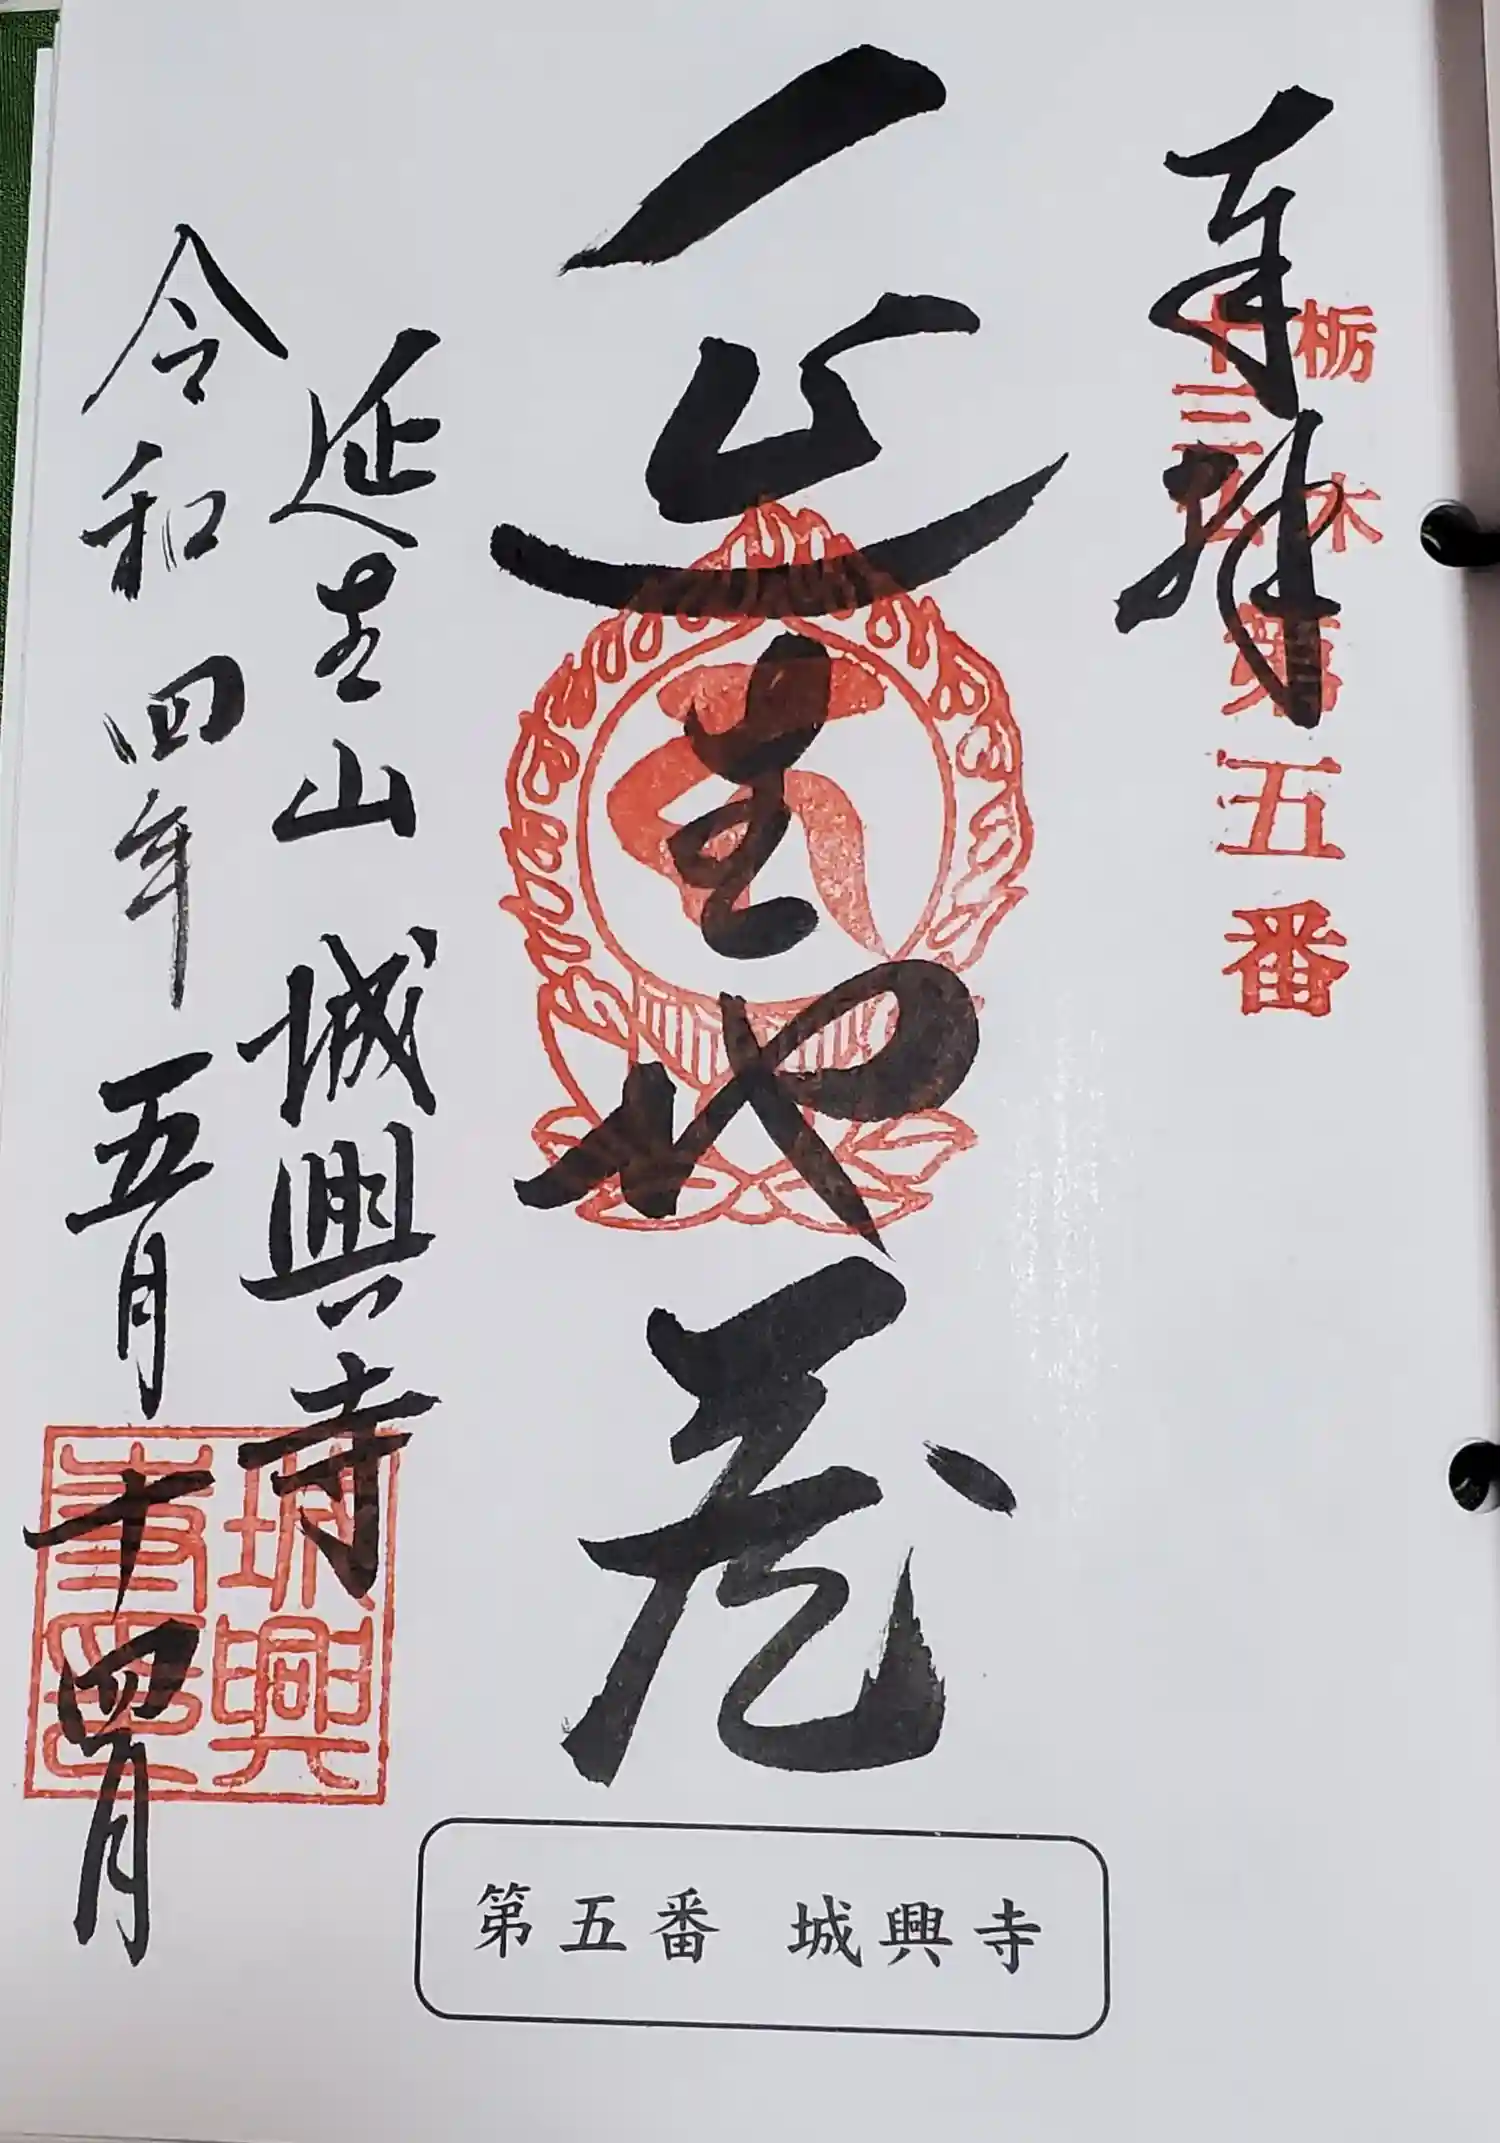 奉拝
栃木
十三仏
第五番
延生地蔵
延生山 城興寺
令和四年五月十四日
城興
寺印
第五番 城興寺